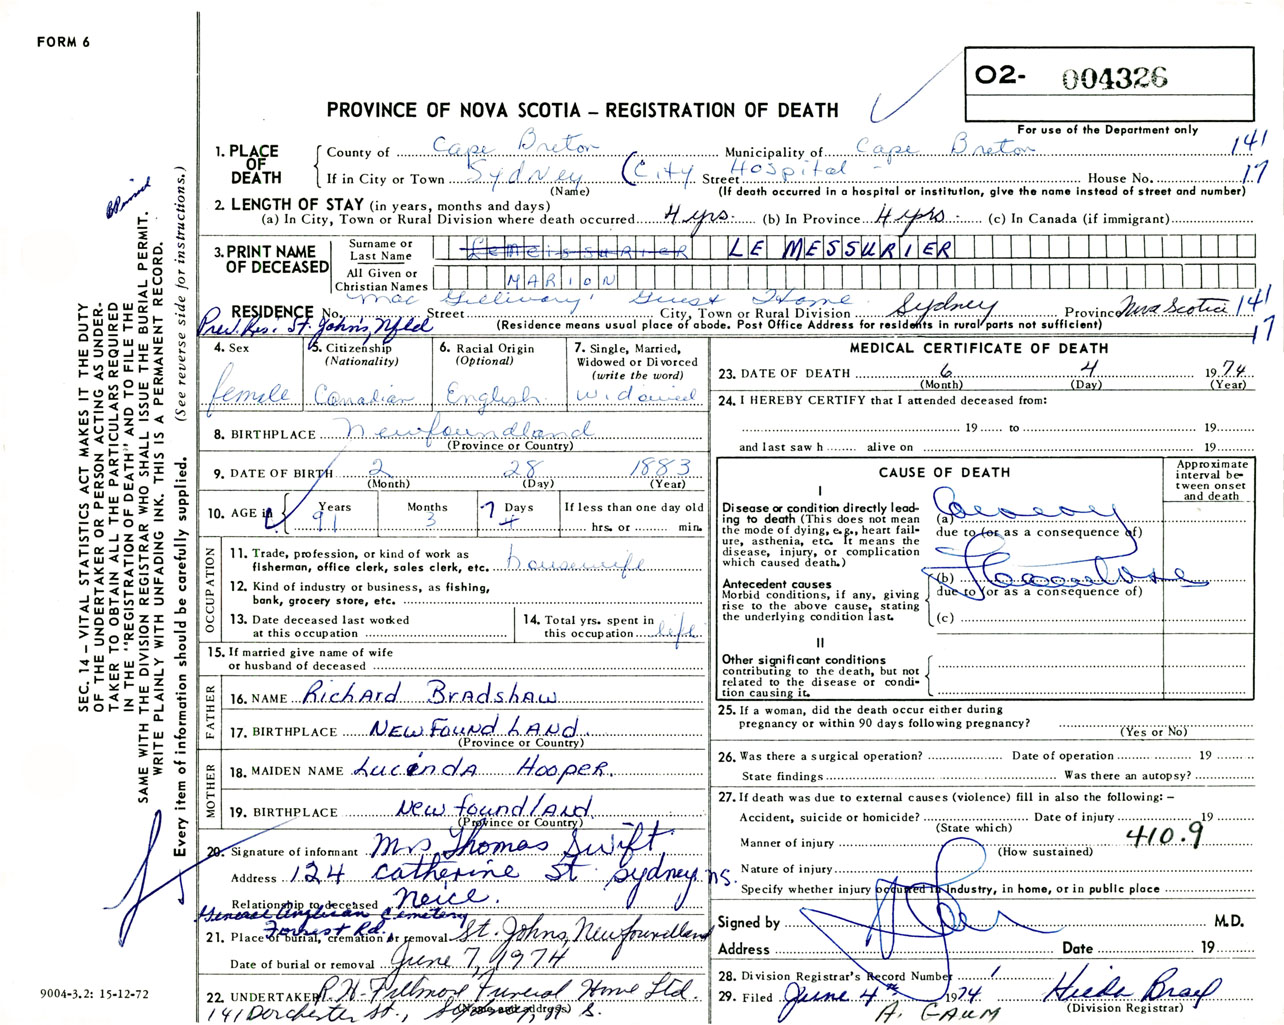 FORM 6
O2- 004326
PROVINCE OF NOVA SCOTIA – REGISTRATION OF DEATH
For use of the Department only
1. PLACE OF DEATH
County of Cape Breton Municipality of Cape Breton 141
If in City or Town Sydney (City Street Hospital House No. 17
(Name) (If death occurred in a hospital or institution, give the name instead of street and number)
2. LENGTH OF STAY (in years, months and days)
(a) In City, Town or Rural Division where death occurred 4 yrs. (b) In Province 4 yrs. (c) In Canada (if immigrant)
3. PRINT NAME OF DECEASED
Surname or Last Name LeMeissurier LE MESSURIER
All Given or Christian Names MARION
RESIDENCE No. Mac Gillivary' Guest Home Street City, Town or Rural Division Sydney Province Nova Scotia 141
Prev. Res. St. John's, Nfld (Residence means usual place of abode. Post Office Address for residents in rural parts not sufficient) 17
4. Sex
female
5. Citizenship
(Nationality)
Canadian
6. Racial Origin
(Optional)
English
7. Single, Married,
Widowed or Divorced
(write the word)
Widowed
8. BIRTHPLACE Newfoundland
(Province or Country)
9. DATE OF BIRTH 2 28 1883
(Month) (Day) (Year)
10. AGE in Years Months Days If less than one day old
91 3 7 4 hrs. or min.
OCCUPATION
11. Trade, profession, or kind of work as
fisherman, office clerk, sales clerk, etc. housewife
12. Kind of industry or business, as fishing,
bank, grocery store, etc.
13. Date deceased last worked
at this occupation
14. Total yrs. spent in
this occupation life
15. If married give name of wife
or husband of deceased
FATHER
16. NAME Richard Bradshaw
17. BIRTHPLACE NEWFOUNDLAND.
(Province or Country)
MOTHER
18. MAIDEN NAME Lucinda Hooper.
19. BIRTHPLACE Newfoundland
(Province or Country)
20. Signature of informant Mrs Thomas Swift
Address 124 Catherine St Sydney N.S.
Relationship to deceased Neice.
General Anglican Cemetery
Forrest Rd.
21. Place of burial, cremation or removal St. Johns, Newfoundland
Date of burial or removal June 7, 1974
22. UNDERTAKER R. H. Fillmore Funeral Home Ltd.
141 Dorchester St., Sydney, N. S.
(Name and address)
MEDICAL CERTIFICATE OF DEATH
23. DATE OF DEATH 6 4 1974
(Month) (Day) (Year)
24. I HEREBY CERTIFY that I attended deceased from:
19 to 19
and last saw h alive on 19
CAUSE OF DEATH
Approximate interval between onset and death
I
Disease or condition directly leading to death (This does not mean the mode of dying, e.g., heart failure, asthenia, etc. It means the disease, injury, or complication which caused death.)
(a) Coronary
due to (or as a consequence of)
Antecedent causes
Morbid conditions, if any, giving rise to the above cause, stating the underlying condition last.
(b)
due to (or as a consequence of)
(c)
II
Other significant conditions
contributing to the death, but not related to the disease or condition causing it.
25. If a woman, did the death occur either during
pregnancy or within 90 days following pregnancy?
(Yes or No)
26. Was there a surgical operation? Date of operation 19
State findings Was there an autopsy?
27. If death was due to external causes (violence) fill in also the following: –
Accident, suicide or homicide? Date of injury 19
(State which)
Manner of injury 410.9
(How sustained)
Nature of injury
Specify whether injury occurred in industry, in home, or in public place
Signed by M.D.
Address Date 19
28. Division Registrar's Record Number 1
29. Filed June 4th 1974 Hilda Brag
(Division Registrar)
SEC. 14 – VITAL STATISTICS ACT MAKES IT THE DUTY
OF THE UNDERTAKER OR PERSON ACTING AS UNDER-
TAKER TO OBTAIN ALL THE PARTICULARS REQUIRED
IN THE "REGISTRATION OF DEATH" AND TO FILE THE
SAME WITH THE DIVISION REGISTRAR WHO SHALL ISSUE THE BURIAL PERMIT.
WRITE PLAINLY WITH UNFADING INK. THIS IS A PERMANENT RECORD.
Every item of information should be carefully supplied. (See reverse side for instructions.)
9004-3.2: 15-12-72